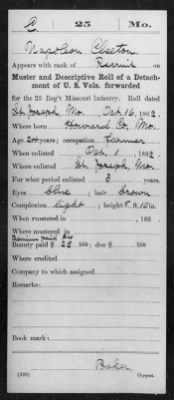 C. 25 Mo.
Napoleon Cleeton
Appears with rank of Recruit on
Muster and Descriptive Roll of a Detach-
ment of U. S. Vols. forwarded
for the 25 Reg't Missouri Infantry. Roll dated
St. Joseph Mo., Oct 16, 1862
Where born Howard Co, Mo.
Age yrs; occupation Farmer
When enlisted Oct , 1862
Where enlisted St. Joseph, Mo.
For what period enlisted 3 years.
Eyes blue; hair brown
Complexion light; height ft. in.
When mustered in , 186
Where mustered in
Bounty paid $ 25 100; due $ 100
Where credited
Company to which assigned
Remarks:
Book mark:
Copyist.